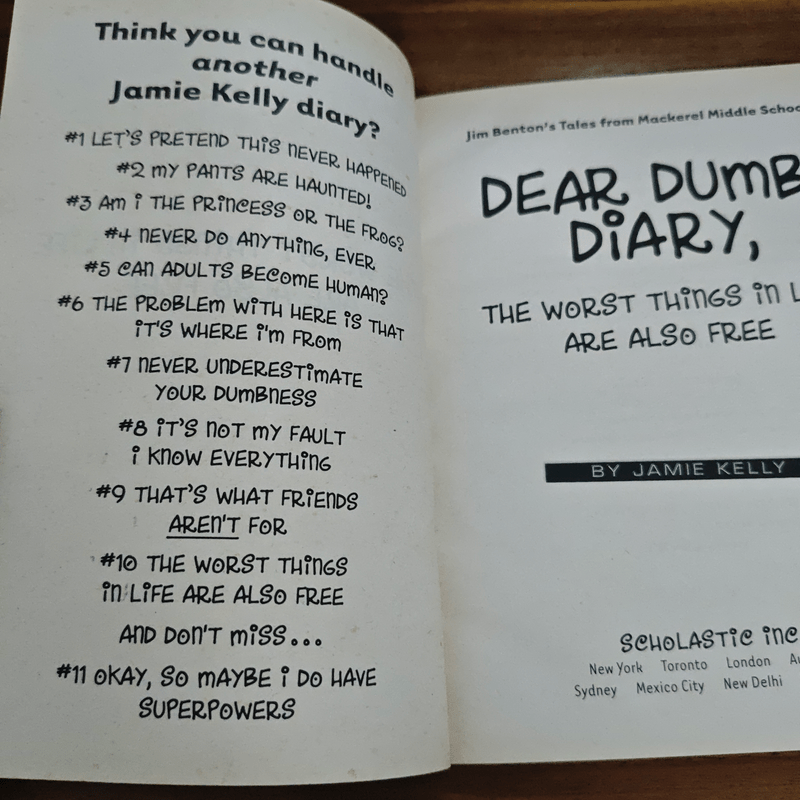 Think you can handle
another
Jamie Kelly diary?
#1 LET'S PRETEND THiS NEVER HAPPENED
#2 MY PANTS ARE HAUNTED!
#3 Am i THE PRiNCESS OR THE FROG?
#4 NEVER DO ANYTHiNG, EVER
#5 CAN ADULTS BECOME HUMAN?
#6 THE PROBLEM WiTH HERE iS THAT
iT'S WHERE i'M FROM
#7 NEVER UNDERESTiMATE
YOUR DUMBNESS
#8 iT'S NOT MY FAULT
i KNOW EVERYTHiNG
#9 THAT'S WHAT FRiENDS
AREN'T FOR
#10 THE WORST THiNGS
iN LiFE ARE ALSO FREE
AND DON'T MiSS...
#11 OKAY, SO MAYBE i DO HAVE
SUPERPOWERS
Jim Benton's Tales from Mackerel Middle Schoo
DEAR DUMB
DiARY,
THE WORST THiNGS iN L
ARE ALSO FREE
BY JAMIE KELLY
SCHOLASTiC iNC
New York Toronto London Au
Sydney Mexico City New Delhi